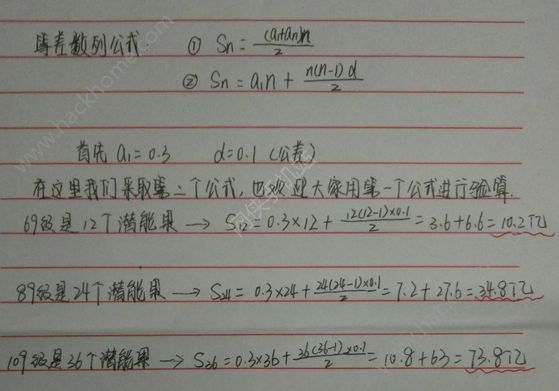 等差数列公式. ① Sn = (a1+an)n/2
② Sn = a1n + n(n-1)d/2
首先 a1=0.3 d=0.1 (公差)
在这里我们采取第二个公式,也欢迎大家用第一个公式进行验算.
69级是12个潜能果 → S12=0.3×12+12(12-1)×0.1/2=3.6+6.6=10.2亿
89级是24个潜能果 → S24=0.3×24+24(24-1)×0.1/2=7.2+27.6=34.8亿
109级是36个潜能果 → S36=0.3×36+36(36-1)×0.1/2=10.8+63=73.8亿
www.hackhome.com